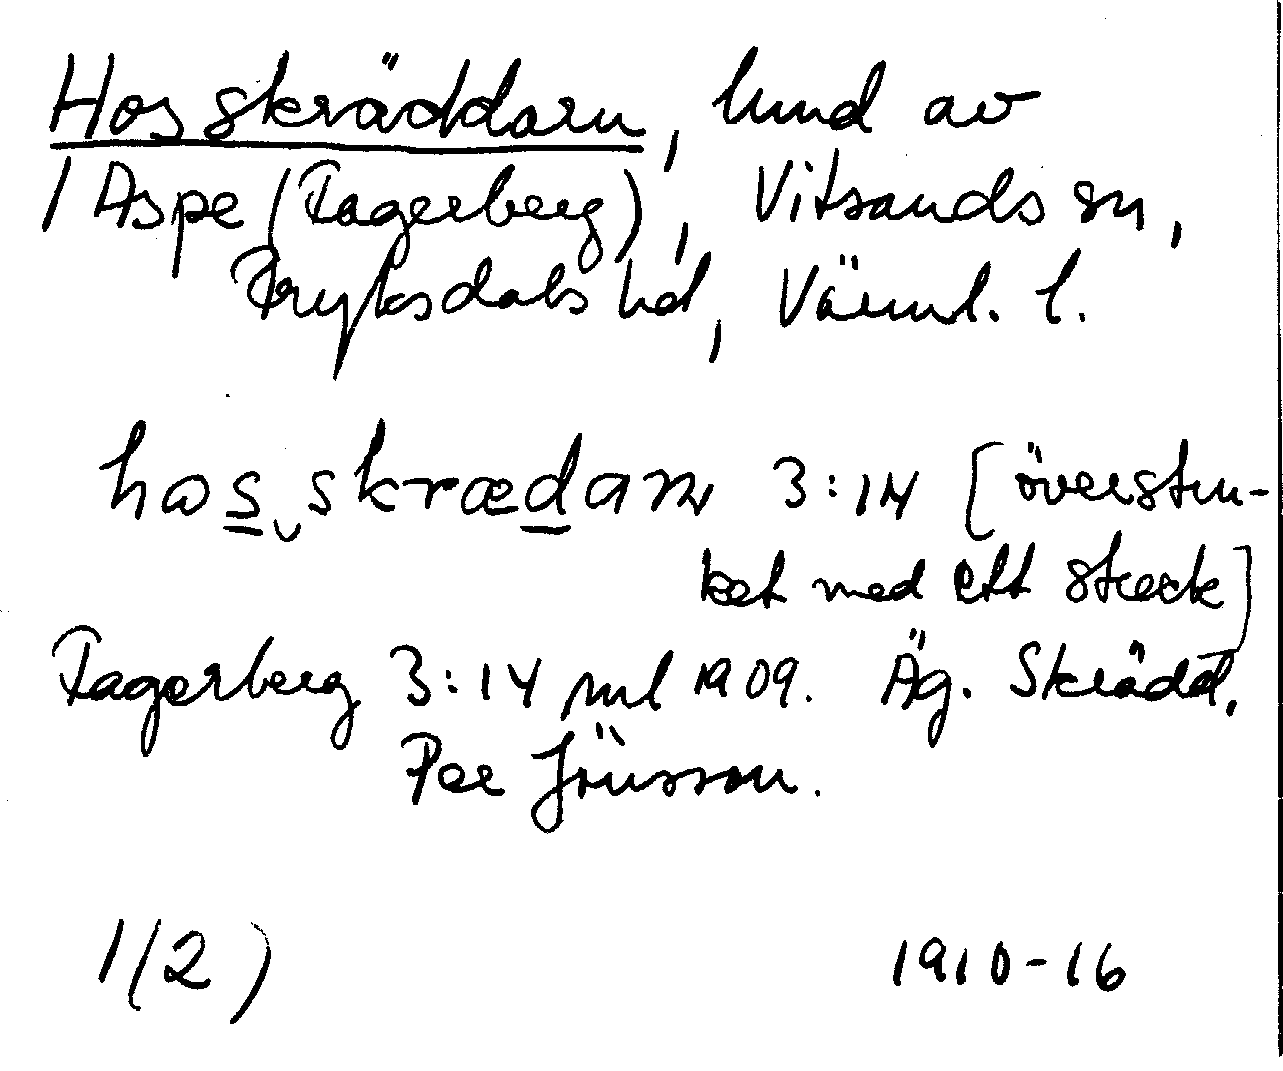 Hos skräddarn, lund av
1 Aspe (Fagerberg), Vitsands sn,
Fryksdals hd, Värml. l.
has skrædan 3:14 [överstru-
ket med ett streck]
Fagerberg 3:14 mtl 1909. Äg. Skrädd.
Per Jönsson.
1(2) 1910-16